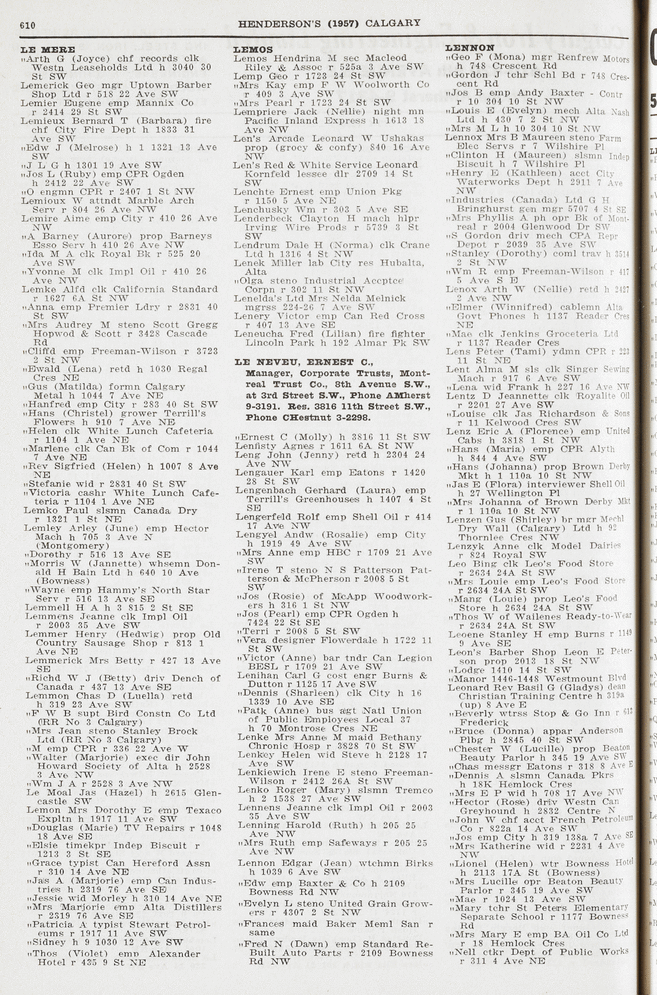 610
HENDERSON'S (1957) CALGARY
LE MERE
"Arth G (Joyce) chf records clk
Westn Leaseholds Ltd h 3040 30
St SW
Lemerick Geo mgr Uptown Barber
Shop Ltd r 518 22 Ave SW
Lemier Eugene emp Mannix Co
r 2414 29 St SW
Lemieux Bernard T (Barbara) fire
chf City Fire Dept h 1833 31
Ave SW
"Edw J (Melrose) h 1 1321 13 Ave
SW
"J L G h 1301 19 Ave SW
"Jos L (Ruby) emp CPR Ogden
h 2412 22 Ave SW
"O engmn CPR r 2407 1 St NW
Lemioux W attndt Marble Arch
Serv r 804 26 Ave NW
Lemire Aime emp City r 410 26 Ave
NW
"A Barney (Aurore) prop Barneys
Esso Serv h 410 26 Ave NW
"Ida M A clk Royal Bk r 525 20
Ave SW
"Yvonne M clk Impl Oil r 410 26
Ave NW
Lemke Alfd clk California Standard
r 1627 6A St NW
"Anna emp Premier Ldry r 2831 40
St SW
"Mrs Audrey M steno Scott Gregg
Hopwood & Scott r 3428 Cascade
Rd
"Cliffd emp Freeman-Wilson r 3723
2 St NW
"Ewald (Lena) retd h 1030 Regal
Cres NE
"Gus (Matilda) formn Calgary
Metal h 1044 7 Ave NE
"Hanfred emp City r 283 40 St SW
"Hans (Christel) grower Terrill's
Flowers h 910 7 Ave NE
"Helen clk White Lunch Cafeteria
r 1104 1 Ave NE
"Marlene clk Can Bk of Com r 1044
7 Ave NE
"Rev Sigfried (Helen) h 1007 8 Ave
NE
"Stefanie wid r 2831 40 St SW
"Victoria cashr White Lunch Cafe-
teria r 1104 1 Ave NE
Lemko Paul slsmn Canada Dry
r 1321 1 St NE
Lemley Arley (June) emp Hector
Mach h 705 3 Ave N
(Montgomery)
"Dorothy r 516 13 Ave SE
"Morris W (Jannette) whsemn Don-
ald H Bain Ltd h 640 10 Ave
(Bowness)
"Wayne emp Hammy's North Star
Serv r 516 13 Ave SE
Lemmell H A h 3 815 2 St SE
Lemmens Jeanne clk Impl Oil
r 2003 35 Ave SW
Lemmer Henry (Hedwig) prop Old
Country Sausage Shop r 813 1
Ave NE
Lemmerick Mrs Betty r 427 13 Ave
SE
"Richd W J (Betty) driv Dench of
Canada r 437 13 Ave SE
Lemmon Chas D (Luella) retd
h 319 23 Ave SW
"F W B supt Bird Constn Co Ltd
(RR No 3 Calgary)
"Mrs Jean steno Stanley Brock
Ltd (RR No 3 Calgary)
"M emp CPR r 336 22 Ave W
"Walter (Marjorie) exec dir John
Howard Society of Alta h 2528
3 Ave NW
"Wm J A r 2528 3 Ave NW
Le Moal Jas (Hazel) h 2615 Glen-
castle SW
Lemon Mrs Dorothy E emp Texaco
Expltn h 1917 11 Ave SW
"Douglas (Marie) TV Repairs r 1048
18 Ave SE
"Elsie timekpr Indep Biscuit r
1213 3 St SE
"Grace typist Can Hereford Assn
r 310 14 Ave NE
"Jas A (Marjorie) emp Can Indus-
tries h 2319 76 Ave SE
"Jessie wid Morley h 310 14 Ave NE
"Mrs Marjorie emp Alta Distillers
r 2319 76 Ave SE
"Patricia A typist Stewart Petrol-
eums r 1917 11 Ave SW
"Sidney h 9 1030 12 Ave SW
"Thos (Violet) emp Alexander
Hotel r 435 9 St NE
LEMOS
Lemos Hendrina M sec Macleod
Riley & Assoc r 525a 3 Ave SW
Lemp Geo r 1723 24 St SW
"Mrs Kay emp F W Woolworth Co
r 409 3 Ave SW
"Mrs Pearl r 1723 24 St SW
Lempriere Jack (Nellie) night mn
Pacific Inland Express h 1613 18
Ave NW
Len's Arcade Leonard W Ushakas
prop (grocy & confy) 840 16 Ave
NW
Len's Red & White Service Leonard
Kornfeld lessee dlr 2709 14 St
SW
Lenchte Ernest emp Union Pkg
r 1150 5 Ave NE
Lenchusky Wm r 303 5 Ave SE
Lenderbeck Clayton H mach hlpr
Irving Wire Prods r 5739 3 St
SW
Lendrum Dale H (Norma) clk Crane
Ltd h 1316 4 St NW
Lenek Miller lab City res Hubalta,
Alta
"Olga steno Industrial Acceptce
Corpn r 302 11 St NW
Lenelda's Ltd Mrs Nelda Melnick
mgrss 224-26 7 Ave SW
Lenery Victor emp Can Red Cross
r 407 13 Ave SE
Leneucha Fred (Lilian) fire fighter
Lincoln Park h 192 Almar Pk SW
LE NEVEU, ERNEST C.,
Manager, Corporate Trusts, Mont-
real Trust Co., 8th Avenue S.W.,
at 3rd Street S.W., Phone AMherst
9-3191. Res. 3816 11th Street S.W.,
Phone CHestnut 3-2298.
"Ernest C (Molly) h 3816 11 St SW
Leney Agnes r 1611 6A St NW
Leng John (Jenny) retd h 2304 24
Ave NW
Lengauer Karl emp Eatons r 1420
28 St SW
Lengenbach Gerhard (Laura) emp
Terrill's Greenhouses h 1407 4 St
SE
Lengerfeld Rolf emp Shell Oil r 414
17 Ave NW
Lengyel Andw (Rosalie) emp City
h 1919 49 Ave SW
"Mrs Anne emp HBC r 1709 21 Ave
SW
"Irene T steno N S Patterson Pat-
terson & McPherson r 2008 5 St
SW
"Jos (Rosie) of McApp Woodwork-
ers h 316 1 St NW
"Jos (Pearl) emp CPR Ogden h
7424 22 St SE
"Terri r 2008 5 St SW
"Vera designer Flowerdale h 1722 11
St SW
"Victor (Anne) bar tndr Can Legion
BESL r 1709 21 Ave SW
Lenihan Carl G cost engr Burns &
Dutton r 1125 17 Ave SW
"Dennis (Sharleen) clk City h 16
1339 10 Ave SE
"Patk (Anne) bus agt Natl Union
of Public Employees Local 37
h 70 Montrose Cres NE
Lenke Mrs Anne M maid Bethany
Chronic Hosp r 3828 70 St SW
Lenkey Helen wid Steve h 2128 17
Ave SW
Lenkiewich Irene E steno Freeman-
Wilson r 2412 26A St SW
Lenko Roger (Mary) slsmn Tremco
h 2 1538 27 Ave SW
Lennens Jeanne clk Impl Oil r 2003
35 Ave SW
Lenning Harold (Ruth) h 205 25
Ave NW
"Mrs Ruth emp Safeways r 205 25
Ave NW
Lennon Edgar (Jean) wtchmn Birks
h 1039 6 Ave SW
"Edw emp Baxter & Co h 2109
Bowness Rd NW
"Evelyn L steno United Grain Grow-
ers r 4307 2 St NW
"Frances maid Baker Meml San r
same
"Fred N (Dawn) emp Standard Re-
Built Auto Parts r 2109 Bowness
Rd NW
LENNON
"Geo F (Mona) mgr Renfrew Motors
h 748 Crescent Rd
"Gordon J tchr Schl Bd r 748 Cres-
cent Rd
"Jos B emp Andy Baxter - Contr
r 10 304 10 St NW
"Louis E (Evelyn) mech Alta Nash
Ltd h 430 7 2 St NW
"Mrs M L h 10 304 10 St NW
Lennox Mrs B Maureen steno Farm
Elec Servs r 7 Wilshire Pl
"Clinton H (Maureen) slsmn Indep
Biscuit h 7 Wilshire Pl
"Henry E (Kathleen) acct City
Waterworks Dept h 2911 7 Ave
NW
"Industries (Canada) Ltd G H
Bringhurst gen mgr 5707 4 St SE
"Mrs Phyllis A ph opr Bk of Mont-
real r 2004 Glenwood Dr SW
"S Gordon driv mech CPA Repr
Depot r 2039 35 Ave SW
"Stanley (Dorothy) coml trav h 3514
2 St NW
"Wm R emp Freeman-Wilson r 417
5 Ave S E
Lenox Arth W (Nellie) retd h 2427
2 Ave NW
"Elmer (Winnifred) cablemn Alta
Govt Phones h 1137 Reader Cres
NE
"Mae clk Jenkins Groceteria Ltd
r 1137 Reader Cres
Lens Peter (Tami) ydmn CPR r 223
11 St NE
Lent Alma M sls clk Singer Sewing
Mach r 917 6 Ave SW
"Lena wid Frank h 227 16 Ave NW
Lentz D Jeannette clk Royalite Oil
r 2201 27 Ave SW
"Louise clk Jas Richardson & Sons
r 11 Kelwood Cres SW
Lenz Eric A (Florence) emp United
Cabs h 3818 1 St NW
"Hans (Maria) emp CPR Alyth
h 844 4 Ave SW
"Hans (Johanna) prop Brown Derby
Mkt h 1 110a 10 St NW
"Jas E (Flora) interviewer Shell Oil
h 27 Wellington Pl
"Mrs Johanna of Brown Derby Mkt
r 1 110a 10 St NW
Lenzen Gus (Shirley) br mgr Mechl
Dry Wall (Calgary) Ltd h 92
Thornlee Cres NW
Lenzyk Anne clk Model Dairies
r 824 Royal SW
Leo Bing clk Leo's Food Store
r 2634 24A St SW
"Mrs Louie emp Leo's Food Store
r 2634 24A St SW
"Mang (Louie) prop Leo's Food
Store h 2634 24A St SW
"Thos W of Wailenes Ready-to-Wear
r 2634 24A St SW
Leoene Stanley H emp Burns r 1149
9 Ave SE
Leon's Barber Shop Leon E Peter-
son prop 2013 18 St NW
"Lodge 1410 14 St SW
"Manor 1446-1448 Westmount Blvd
Leonard Rev Basil G (Gladys) dean
Christian Training Centre h 319a
(up) 8 Ave E
"Beverly wtrss Stop & Go Inn r 637
Frederick
"Bruce (Donna) appar Anderson
Plbg h 2845 40 St SW
"Chester W (Lucille) prop Beaton
Beauty Parlor h 345 19 Ave SW
"Chas messgr Eatons r 318 8 Ave E
"Dennis A slsmn Canada Pkrs
h 18K Hemlock Cres
"Mrs E P wid h 708 17 Ave NW
"Hector (Rose) driv Westn Can
Greyhound h 2832 Centre N
"John W chf acct French Petroleum
Co r 822a 14 Ave SW
"Jos emp City h 319 138a 7 Ave SE
"Mrs Katherine wid r 2231 4 Ave
NW
"Lionel (Helen) wtr Bowness Hotel
h 2113 17A St (Bowness)
"Mrs Lucille opr Beaton Beauty
Parlor r 345 19 Ave SW
"Mae r 1024 13 Ave SW
"Mary tchr St Peters Elementary
Separate School r 1177 Bowness
Rd
"Mrs Mary E emp BA Oil Co Ltd
r 18 Hemlock Cres
"Nell ctkr Dept of Public Works
r 311 4 Ave NE